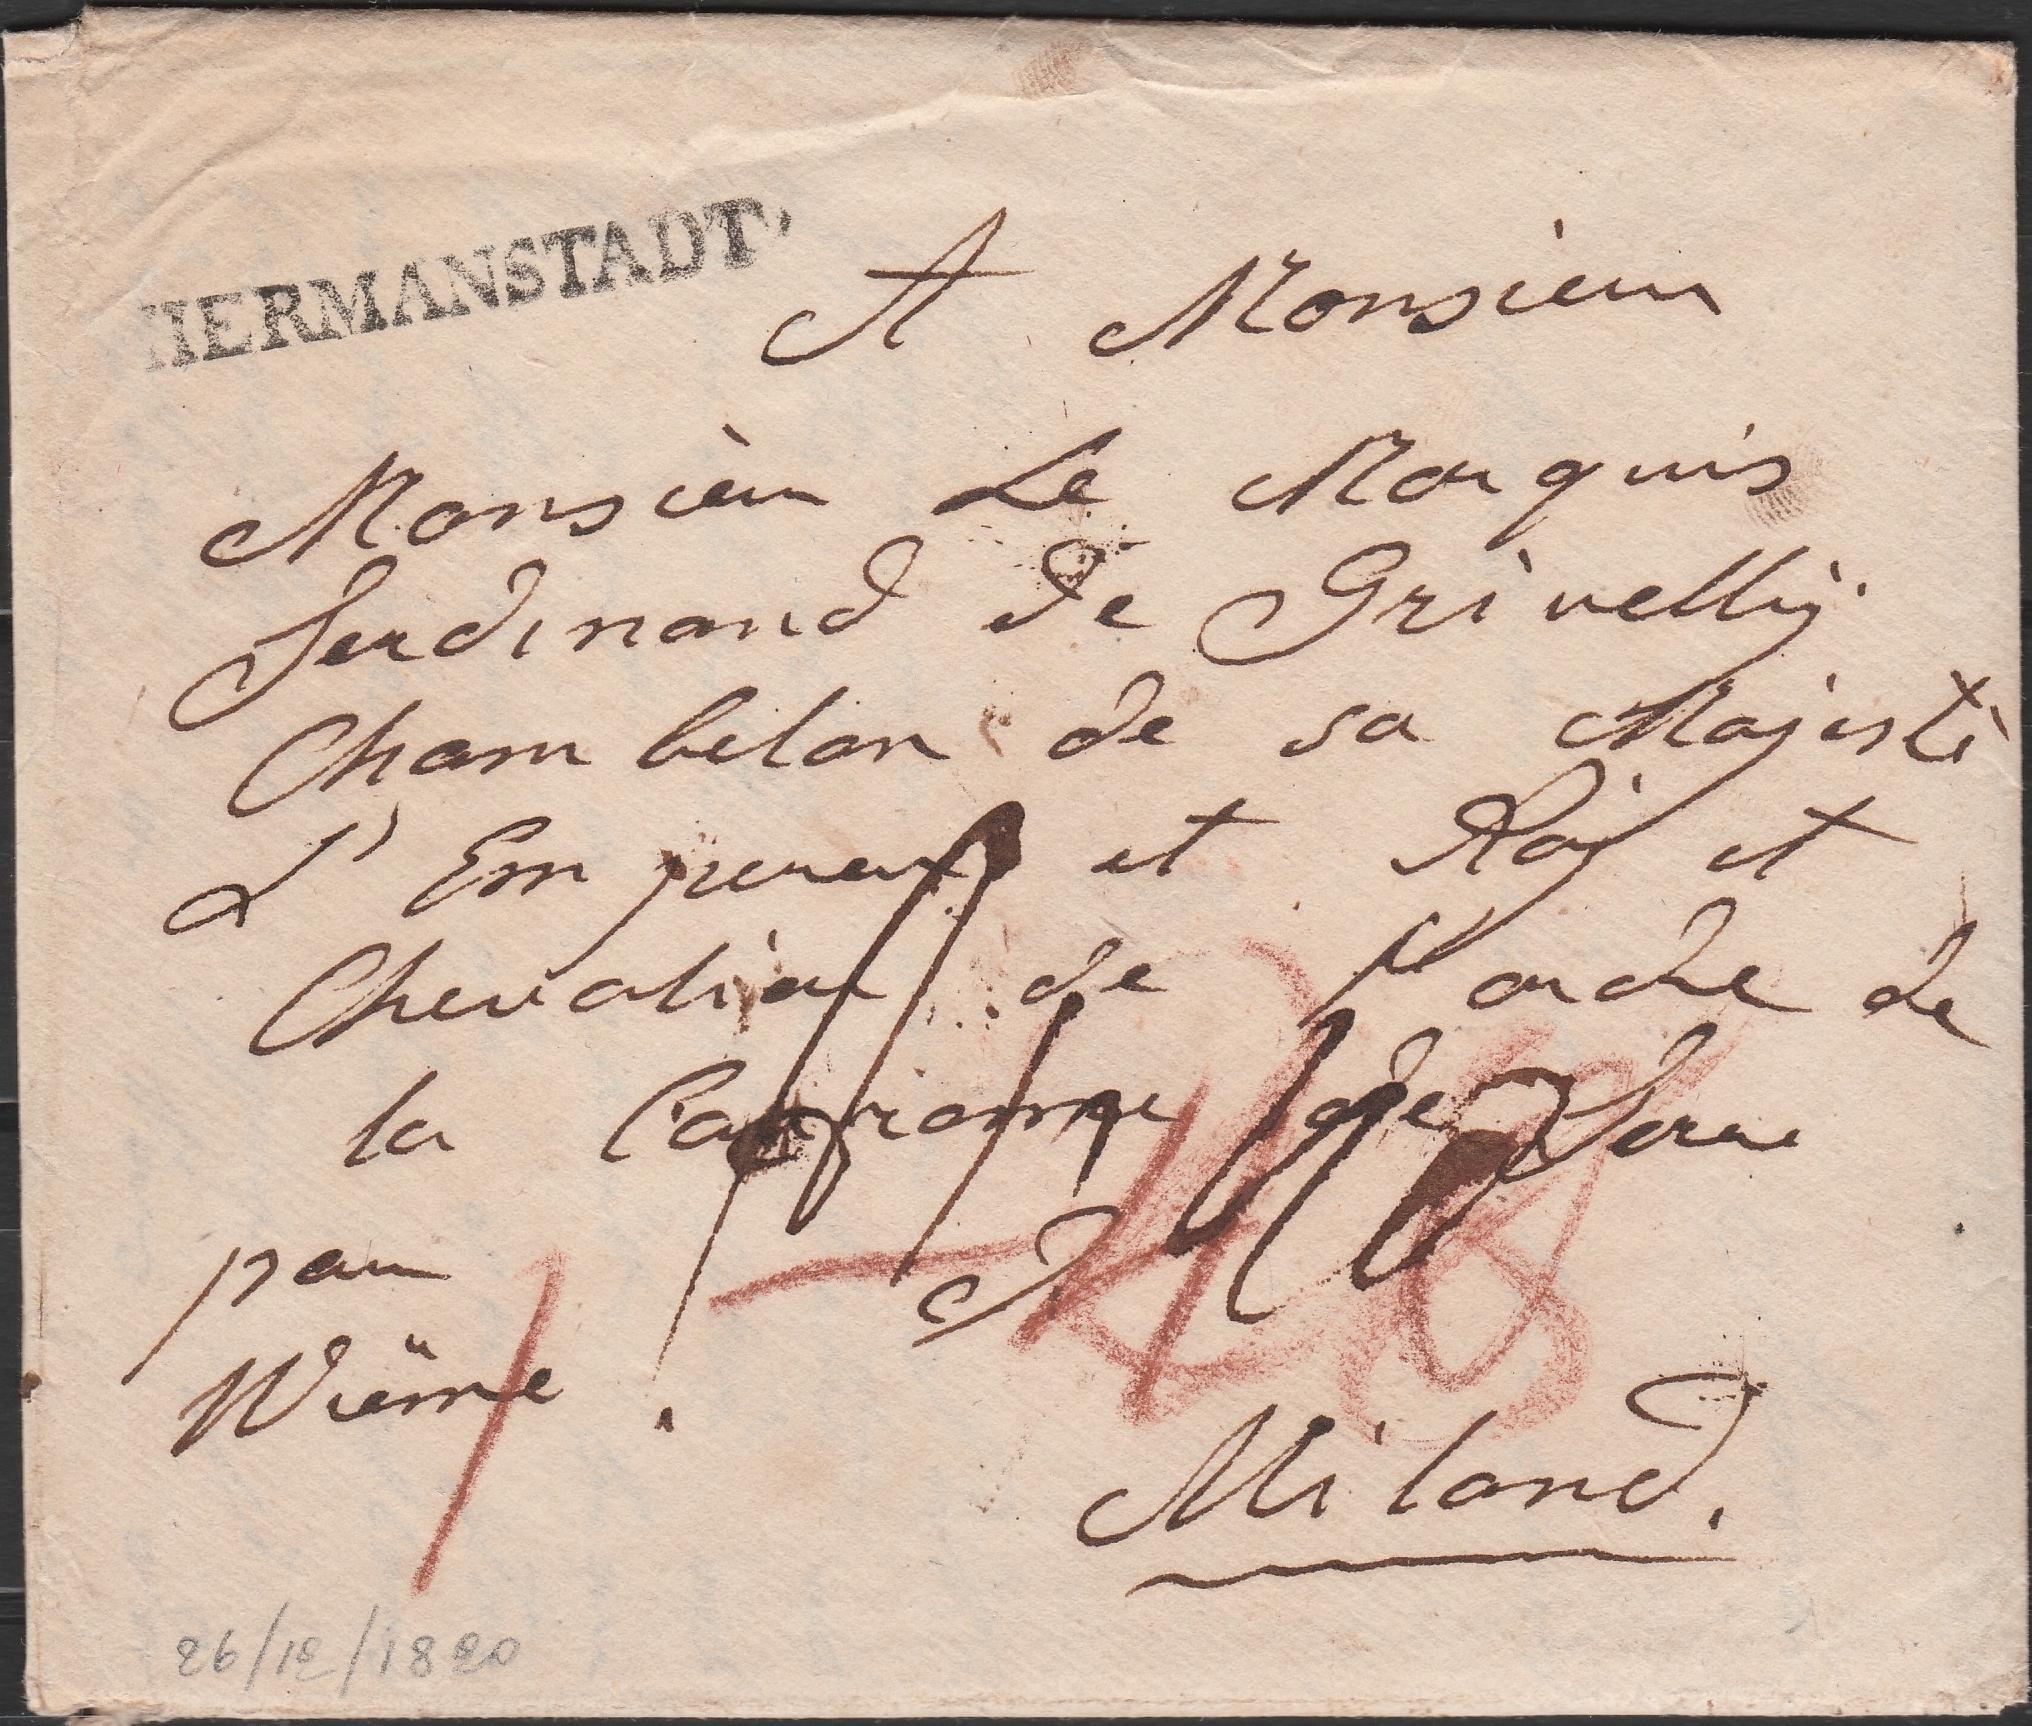 HERMANSTADT
A Monsieur
Monsieur Le Marquis
Ferdinand de Grivellij
Chambelan de sa Majesté
L'Empereur et Roÿ et
Chevalier de l'ordre de
la Couronne de
par
Wiēnne.
à
48
Miland.
26/12/1820